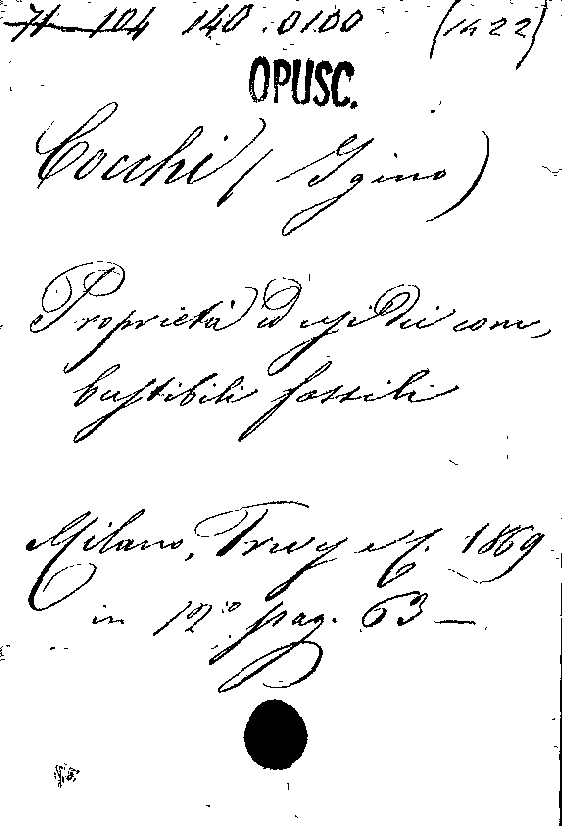 71 104 140.0100 (1422)
OPUSC.
Cocchi (Igino)
Proprietà ed usi dei com,
bustibili fossili
Milano, Trev. e C. 1869
in 12.° pag. 63 —